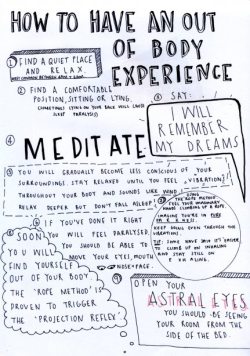 HOW TO HAVE AN OUT
OF BODY
EXPERIENCE
1 FIND A QUIET PLACE
AND RELAX.
2 FIND A COMFORTABLE
POSITION, SITTING OR LYING.
(SOMETIMES LYING ON YOUR BACK WILL CAUSE
SLEEP PARALYSIS)
3 SAY:
I WILL
REMEMBER
MY DREAMS
4 MEDITATE
5 YOU WILL GRADUALLY BECOME LESS CONSCIOUS OF YOUR
SURROUNDINGS. STAY RELAXED UNTIL YOU FEEL VIBRATION
THROUGHOUT YOUR BODY AND SOUNDS LIKE WIND
RELAX DEEPER BUT DON'T FALL ASLEEP!
6 IF YOU'VE DONE IT RIGHT
YOU WILL FEEL PARALYSED.
YOU SHOULD BE ABLE TO
MOVE YOUR EYES, MOUTH
NOSE, FACE.
THE ROPE METHOD
FEEL YOUR IMAGINARY
HANDS CLIMBING UP A ROPE
IMAGINE YOU'RE IN
KEEP GOING EVEN THROUGH THE
VIBRATION!
TIP: SOME HAVE SAID IT'S EASIER
TO CLIMB UP AN
AND STAY STILL ON
8 SOON
YOU WILL
FIND YOURSELF
OUT OF YOUR BODY.
THE 'ROPE METHOD' IS
PROVEN TO TRIGGER
THE 'PROJECTION REFLEX'.
9 OPEN YOUR
ASTRAL EYES
YOU SHOULD BE SEEING
YOUR ROOM FROM THE
SIDE OF THE BED.